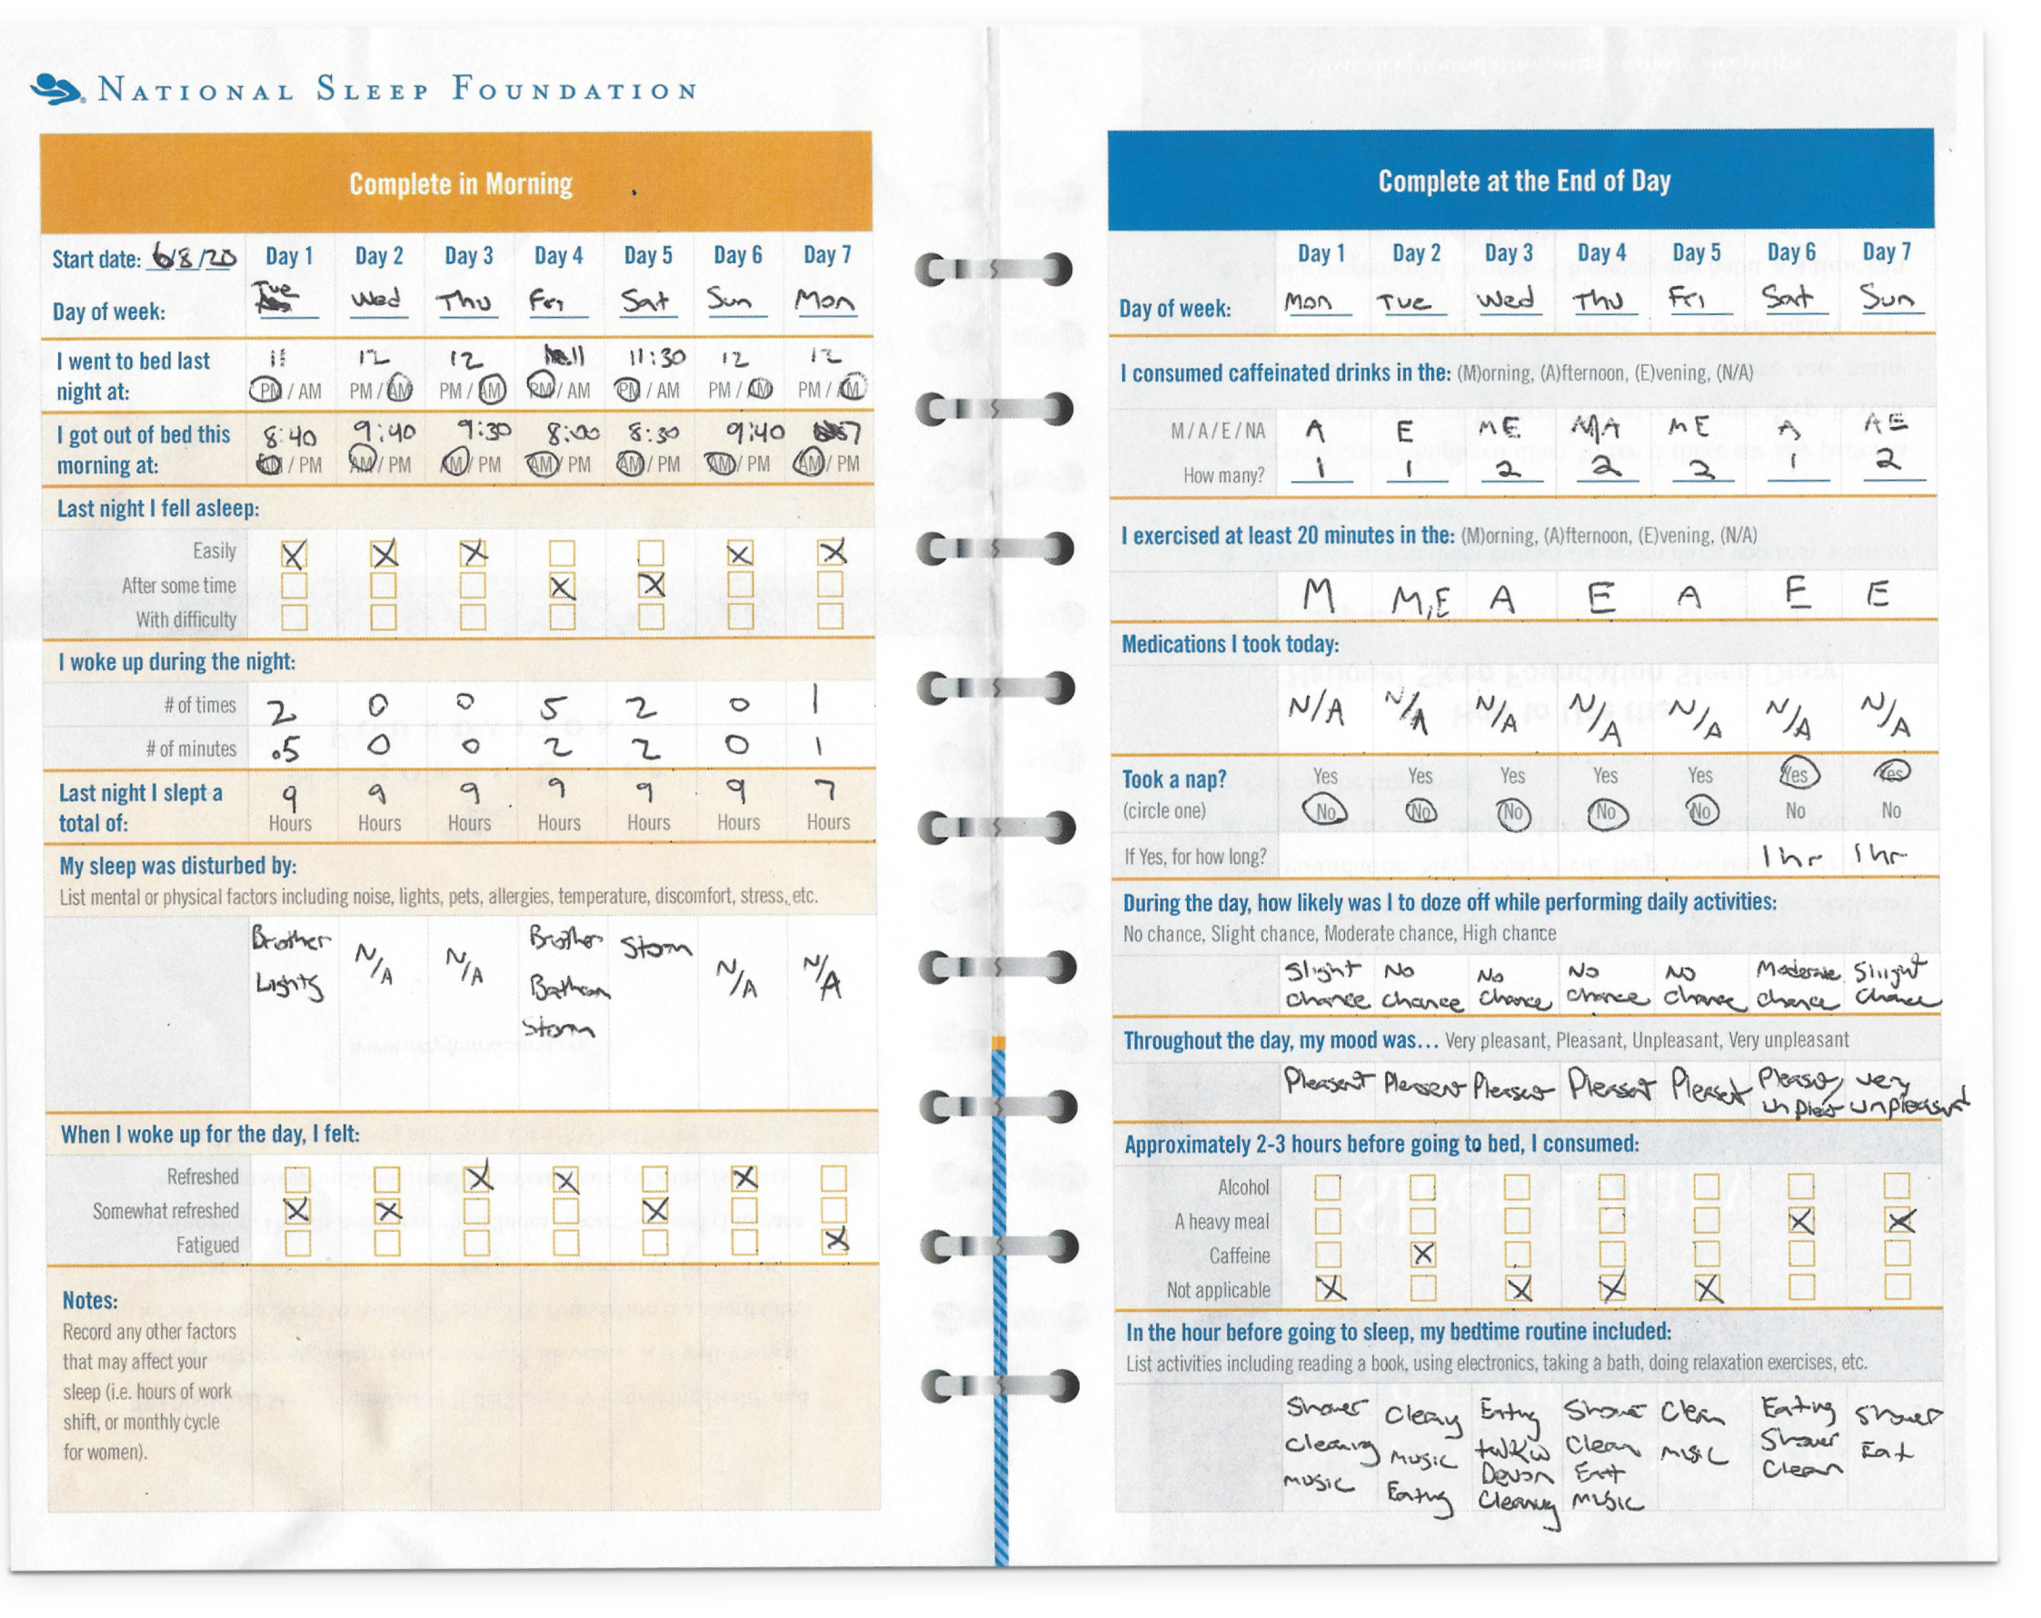 NATIONAL SLEEP FOUNDATION
Complete in Morning
Start date: 6/8/20 Day 1 Day 2 Day 3 Day 4 Day 5 Day 6 Day 7
Day of week: Tue Wed Thu Fri Sat Sun Mon
I went to bed last night at: 11 12 12 11 11:30 12 12
PM / AM PM / AM PM / AM PM / AM PM / AM PM / AM PM / AM
I got out of bed this morning at: 8:40 9:40 9:30 8:00 8:30 9:40 7
AM / PM AM / PM AM / PM AM / PM AM / PM AM / PM AM / PM
Last night I fell asleep:
Easily X X X X X
After some time X X
With difficulty
I woke up during the night:
# of times 2 0 0 5 2 0 1
# of minutes .5 0 0 2 2 0 1
Last night I slept a total of: 9 9 9 9 9 9 7
Hours Hours Hours Hours Hours Hours Hours
My sleep was disturbed by:
List mental or physical factors including noise, lights, pets, allergies, temperature, discomfort, stress, etc.
Brother N/A N/A Brother Storm N/A N/A
Lights
Storm
When I woke up for the day, I felt:
Refreshed X X X
Somewhat refreshed X X X
Fatigued X
Notes:
Record any other factors
that may affect your
sleep (i.e. hours of work
shift, or monthly cycle
for women).
Complete at the End of Day
Day 1 Day 2 Day 3 Day 4 Day 5 Day 6 Day 7
Day of week: Mon Tue Wed Thu Fri Sat Sun
I consumed caffeinated drinks in the: (M)orning, (A)fternoon, (E)vening, (N/A)
M / A / E / NA A E ME M/A ME A AE
How many? 1 1 2 2 2 1 2
I exercised at least 20 minutes in the: (M)orning, (A)fternoon, (E)vening, (N/A)
M M,E A E A E E
Medications I took today:
N/A N/A N/A N/A N/A N/A N/A
Took a nap? Yes Yes Yes Yes Yes Yes Yes
(circle one) No No No No No No No
If Yes, for how long? 1hr 1hr
During the day, how likely was I to doze off while performing daily activities:
No chance, Slight chance, Moderate chance, High chance
Slight No No No No Moderate Slight
chance chance chance chance chance chance chance
Throughout the day, my mood was... Very pleasant, Pleasant, Unpleasant, Very unpleasant
Pleasent Pleasent Pleasent Pleasent Pleasent very
unpleasant
Approximately 2-3 hours before going to bed, I consumed:
Alcohol
A heavy meal X X
Caffeine X
Not applicable X X X X
In the hour before going to sleep, my bedtime routine included:
List activities including reading a book, using electronics, taking a bath, doing relaxation exercises, etc.
Shower Eating Clean Eating Shower
Cleaning Music Clean Music Shower Eat
Music Devon Clean
Eating Cleaning Music